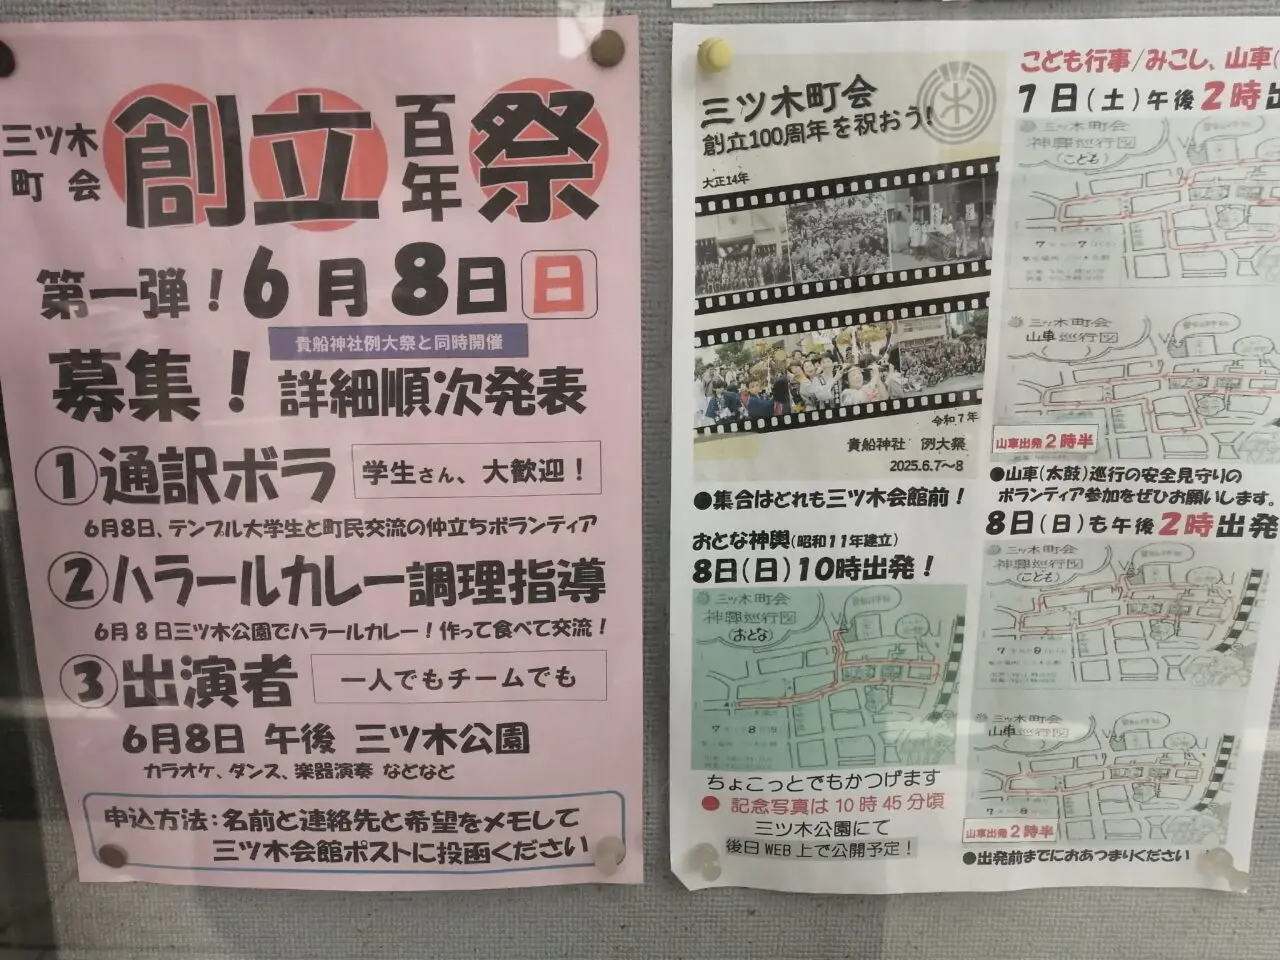 三ツ木
町会
創立
百年
祭
第一弾！6月8日 日
貴船神社例大祭と同時開催
募集！詳細順次発表
①通訳ボラ 学生さん、大歓迎！
6月8日、テンプル大学生と町民交流の仲立ちボランティア
②ハラールカレー調理指導
6月8日三ツ木公園でハラールカレー！作って食べて交流！
③出演者 一人でもチームでも
6月8日 午後 三ツ木公園
カラオケ、ダンス、楽器演奏 などなど
申込方法：名前と連絡先と希望をメモして
三ツ木会館ポストに投函ください
三ツ木町会
創立100周年を祝おう!
大正14年
令和7年
貴船神社 例大祭
2025.6.7～8
●集合はどれも三ツ木会館前！
おとな神輿(昭和11年建立)
8日(日)10時出発！
三ツ木町会
神輿巡行図
(おとな)
ちょこっとでもかつげます
●記念写真は10時45分頃
三ツ木公園にて
後日WEB上で公開予定！
こども行事/みこし、山車(
7日(土)午後2時出
三ツ木町会
神輿巡行図
(こども)
三ツ木町会
山車巡行図
山車出発2時半
●山車(太鼓)巡行の安全見守りの
ボランティア参加をぜひお願いします。
8日(日)も午後2時出発
三ツ木町会
神輿巡行図
(こども)
三ツ木町会
山車巡行図
山車出発2時半
●出発前までにおあつまりください